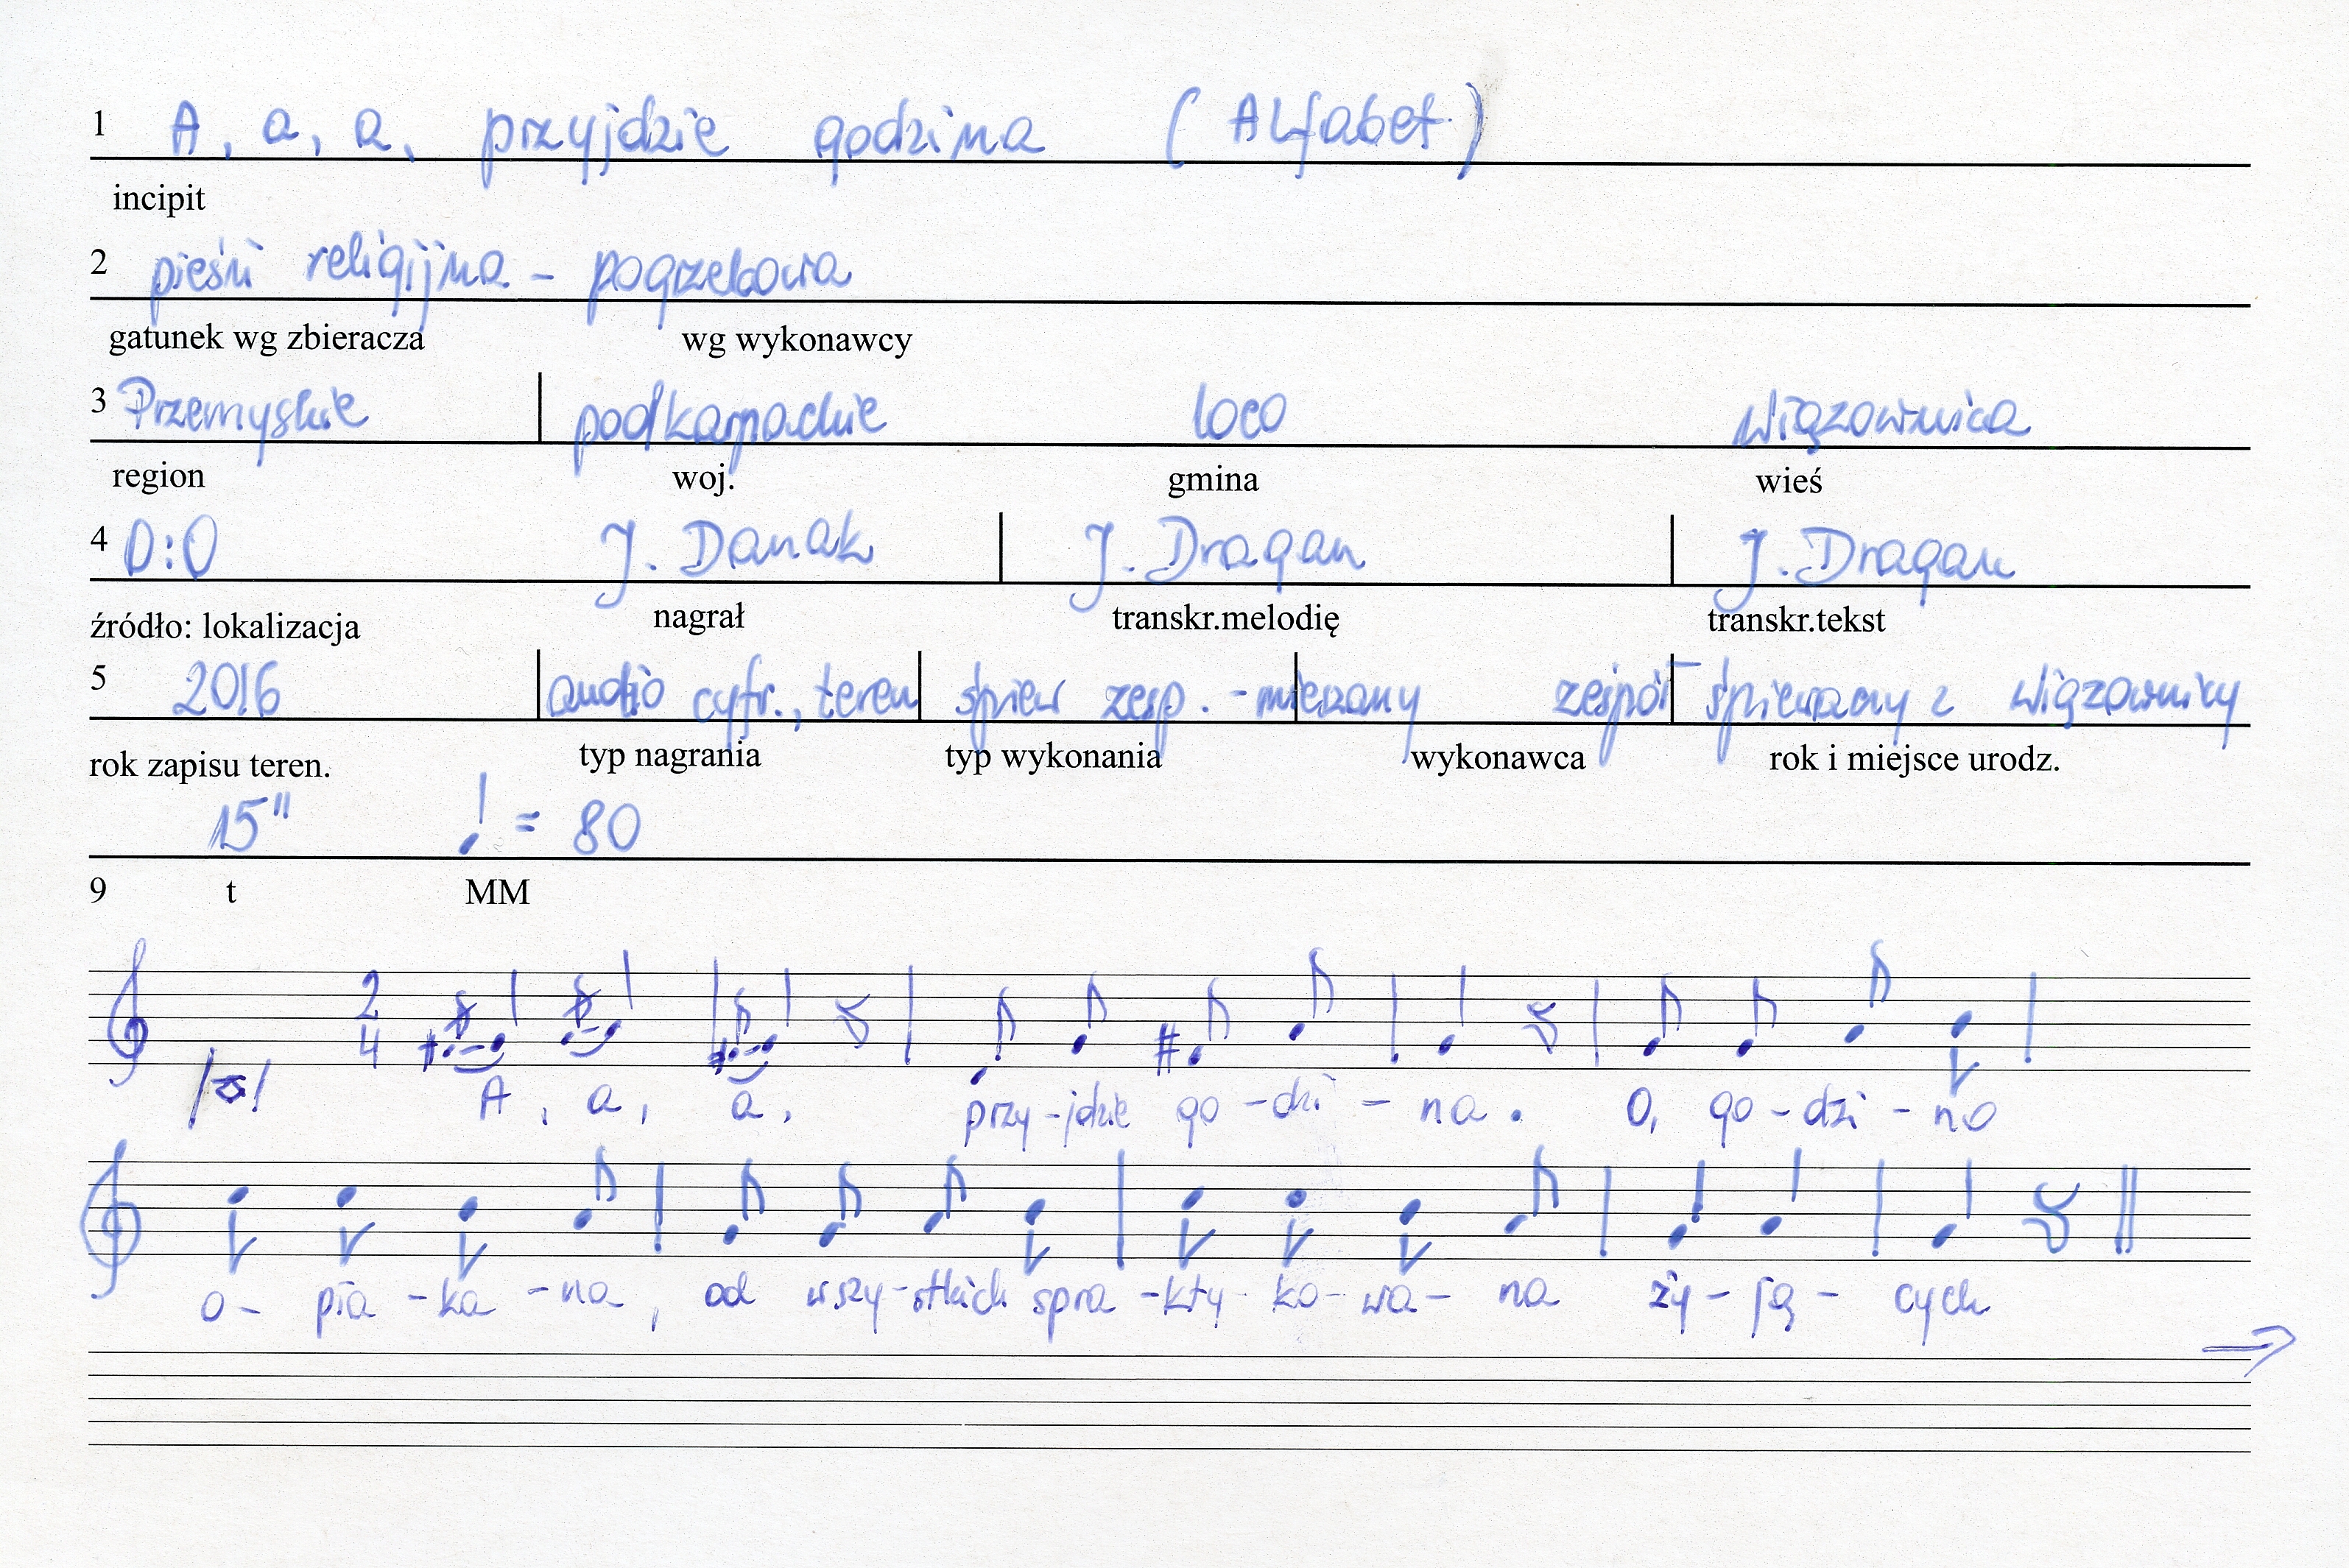 1 A, a, a, przyjdzie godzina (Alfabet)
incipit
2 pieśń religijna - pogrzebowa
gatunek wg zbieracza wg wykonawcy
3 Przemyskie podkarpackie loco Wiązownica
region woj. gmina wieś
4 D:0 J. Danak J. Dragan J. Dragan
źródło: lokalizacja nagrał transkr.melodię transkr.tekst
5 2016 audio cyfr., teren śpiew zesp. - mieszany zespół śpiewaczy z Wiązownicy
rok zapisu teren. typ nagrania typ wykonania wykonawca rok i miejsce urodz.
15" = 80
9 t MM
2
4
A, a, a, przy-jdzie go-dzi-na. O, go-dzi-no
o-pła-ka-na, od wszy-stkich spra-kty-ko-wa-na ży-ją-cych